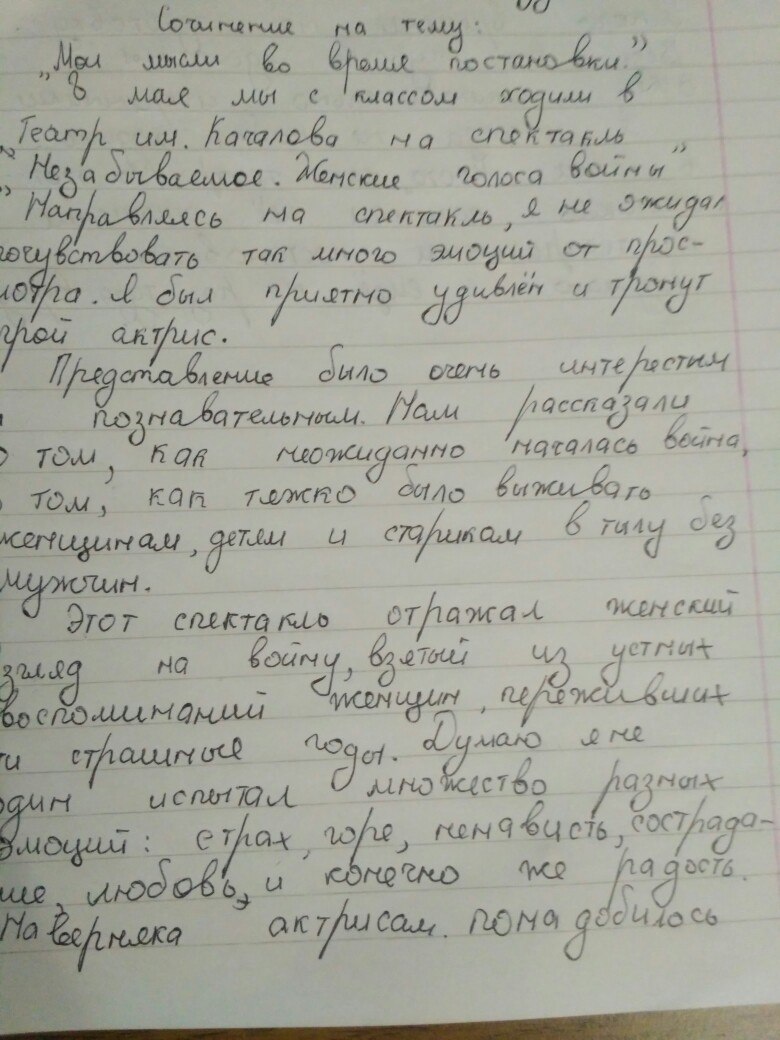 Сочинение на тему:
„Мои мысли во время постановки."
В мая мы с классом ходили в
„Театр им. Качалова на спектакль
„Незабываемое. Женские голоса войны"
Направляясь на спектакль, я не ожидал
почувствовать так много эмоций от прос-
мотра. Я был приятно удивлён и тронут
игрой актрис.
Представление было очень интерестым
и познавательным. Нам рассказали
о том, как неожиданно началась война,
о том, как тяжко было выживать
женщинам, детям и старикам в тылу без
мужчин.
Этот спектакль отражал женский
взгляд на войну, взятый из устных
воспоминаний женщин, переживших
эти страшные годы. Думаю я не
один испытал множество разных
эмоций: страх, горе, ненависть, сострада-
ние, любовь, и конечно же радость.
Наверняка актрисам понадобилось